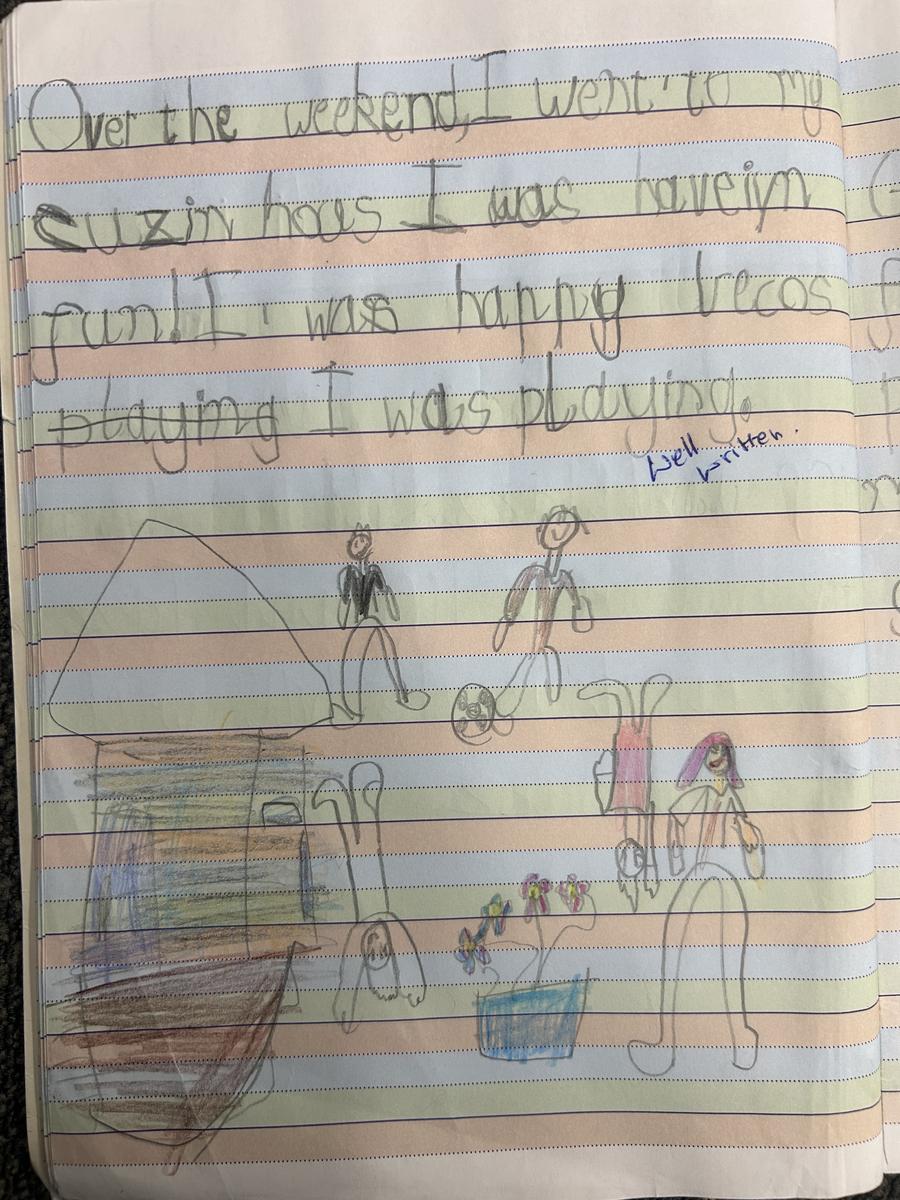 Over the weekend, I went to my
cuzin hous I was haveiyn
fun! I was happy becos
playing I was playing.
Well
written.